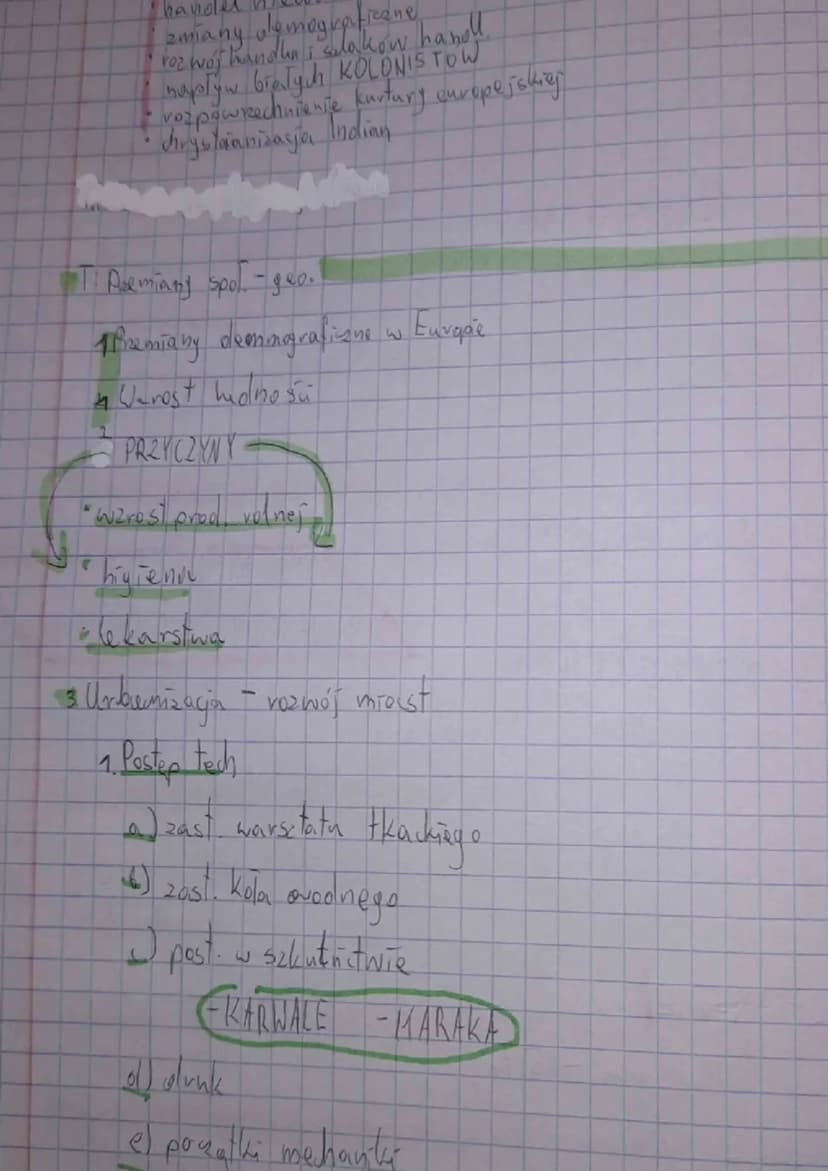 handel
zmiany demograficzne
rozwój handlu i szlaków handl.
napływ białych KOLONISTÓW
• rozpowrzechnienie kurtury europejskiej
• chrystianizacja Indian
T: Przemiany społ. - geo.
1 Przemiany demograficzne w Europie
Wzrost ludności
2 PRZYCZYNY
• wzrost prod. rolnej
• higiena
• lekarstwa
3. Urbanizacja - rozwój miast
1. Postęp tech
a) zast. warsztatu tkackiego
b) zast. koła wodnego
c) post. w szkutnictwie
- KARWALE - KARAKA
d) druk
e) początki mechaniki